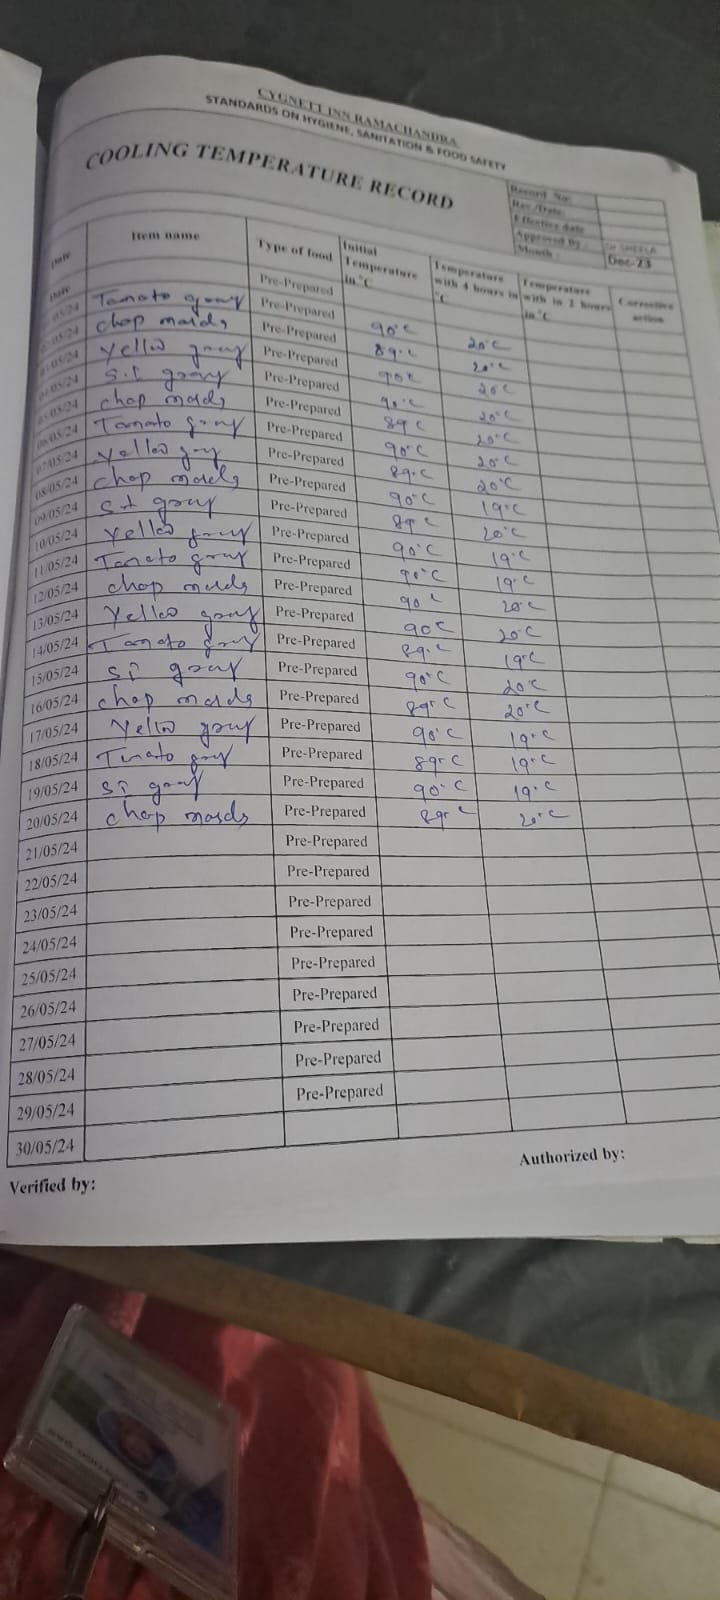 CYGNETT INN RAMACHANDRA
STANDARDS ON HYGIENE, SANITATION & FOOD SAFETY
COOLING TEMPERATURE RECORD
Record No:
Rev./Date:
Effective date
Approved By:
Month: Dec-23
Date Item name Type of food Initial Temperature in °C Temperature with 4 hours in °C Temperature with in 2 hours in °C Corrective action
Date Pre-Prepared
05/24 Tomato gravy Pre-Prepared 90°C 20°C
05/24 chop masds Pre-Prepared 89°C 20°C
05/24 Yellow gravy Pre-Prepared 90°C 20°C
05/24 S.t gravy Pre-Prepared 90°C 20°C
05/05/24 chop masds Pre-Prepared 89°C 20°C
06/05/24 Tomato gravy Pre-Prepared 90°C 20°C
07/05/24 Yellow gravy Pre-Prepared 89°C 20°C
08/05/24 chop masds Pre-Prepared 90°C 19°C
09/05/24 S.t gravy Pre-Prepared 89°C 20°C
10/05/24 Yellow gravy Pre-Prepared 90°C 19°C
11/05/24 Tomato gravy Pre-Prepared 90°C 19°C
12/05/24 chop masds Pre-Prepared 90°C 20°C
13/05/24 Yellow gravy Pre-Prepared 90°C 20°C
14/05/24 Tomato gravy Pre-Prepared 89°C 19°C
15/05/24 St gravy Pre-Prepared 90°C 20°C
16/05/24 chop masds Pre-Prepared 89°C 20°C
17/05/24 Yellow gravy Pre-Prepared 90°C 19°C
18/05/24 Tomato gravy Pre-Prepared 89°C 19°C
19/05/24 St gravy Pre-Prepared 90°C 19°C
20/05/24 chop masds Pre-Prepared 89°C 20°C
21/05/24 Pre-Prepared
22/05/24 Pre-Prepared
23/05/24 Pre-Prepared
24/05/24 Pre-Prepared
25/05/24 Pre-Prepared
26/05/24 Pre-Prepared
27/05/24 Pre-Prepared
28/05/24 Pre-Prepared
29/05/24 Pre-Prepared
30/05/24
Verified by: Authorized by: